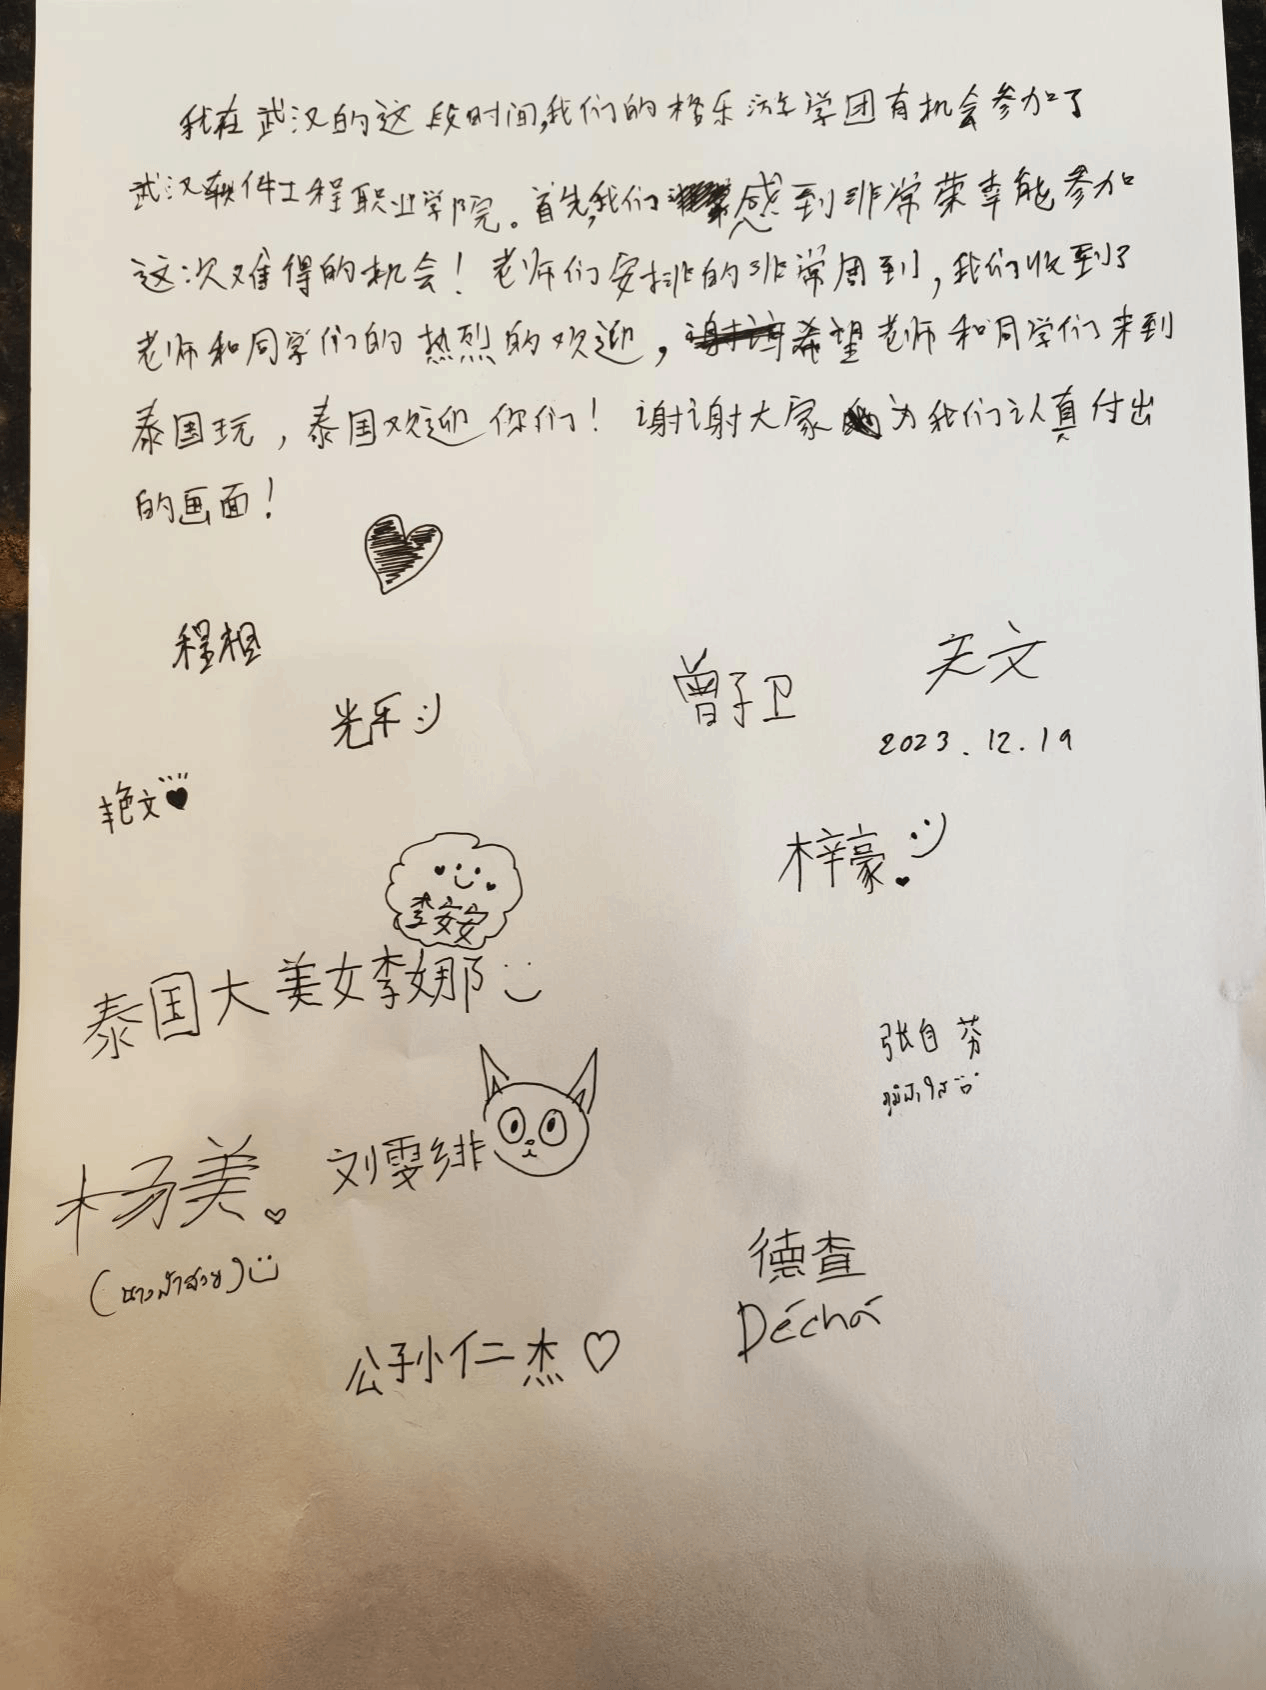 我在武汉的这段时间,我们的格乐游学团有机会参加了
武汉软件工程职业学院。首先,我们感到非常荣幸能参加
这次难得的机会！老师们安排的非常周到,我们收到了
老师和同学们的热烈的欢迎,希望老师和同学们来到
泰国玩,泰国欢迎你们！谢谢大家为我们认真付出
的画面！
程相
光乐:)
曾子卫
天文
2023.12.19
艳文
梓豪
李安安
泰国大美女李娜
张自芬
杨美
刘雯绯
(นางฟ้าสวย)
德查
Déchá
公孙仁杰